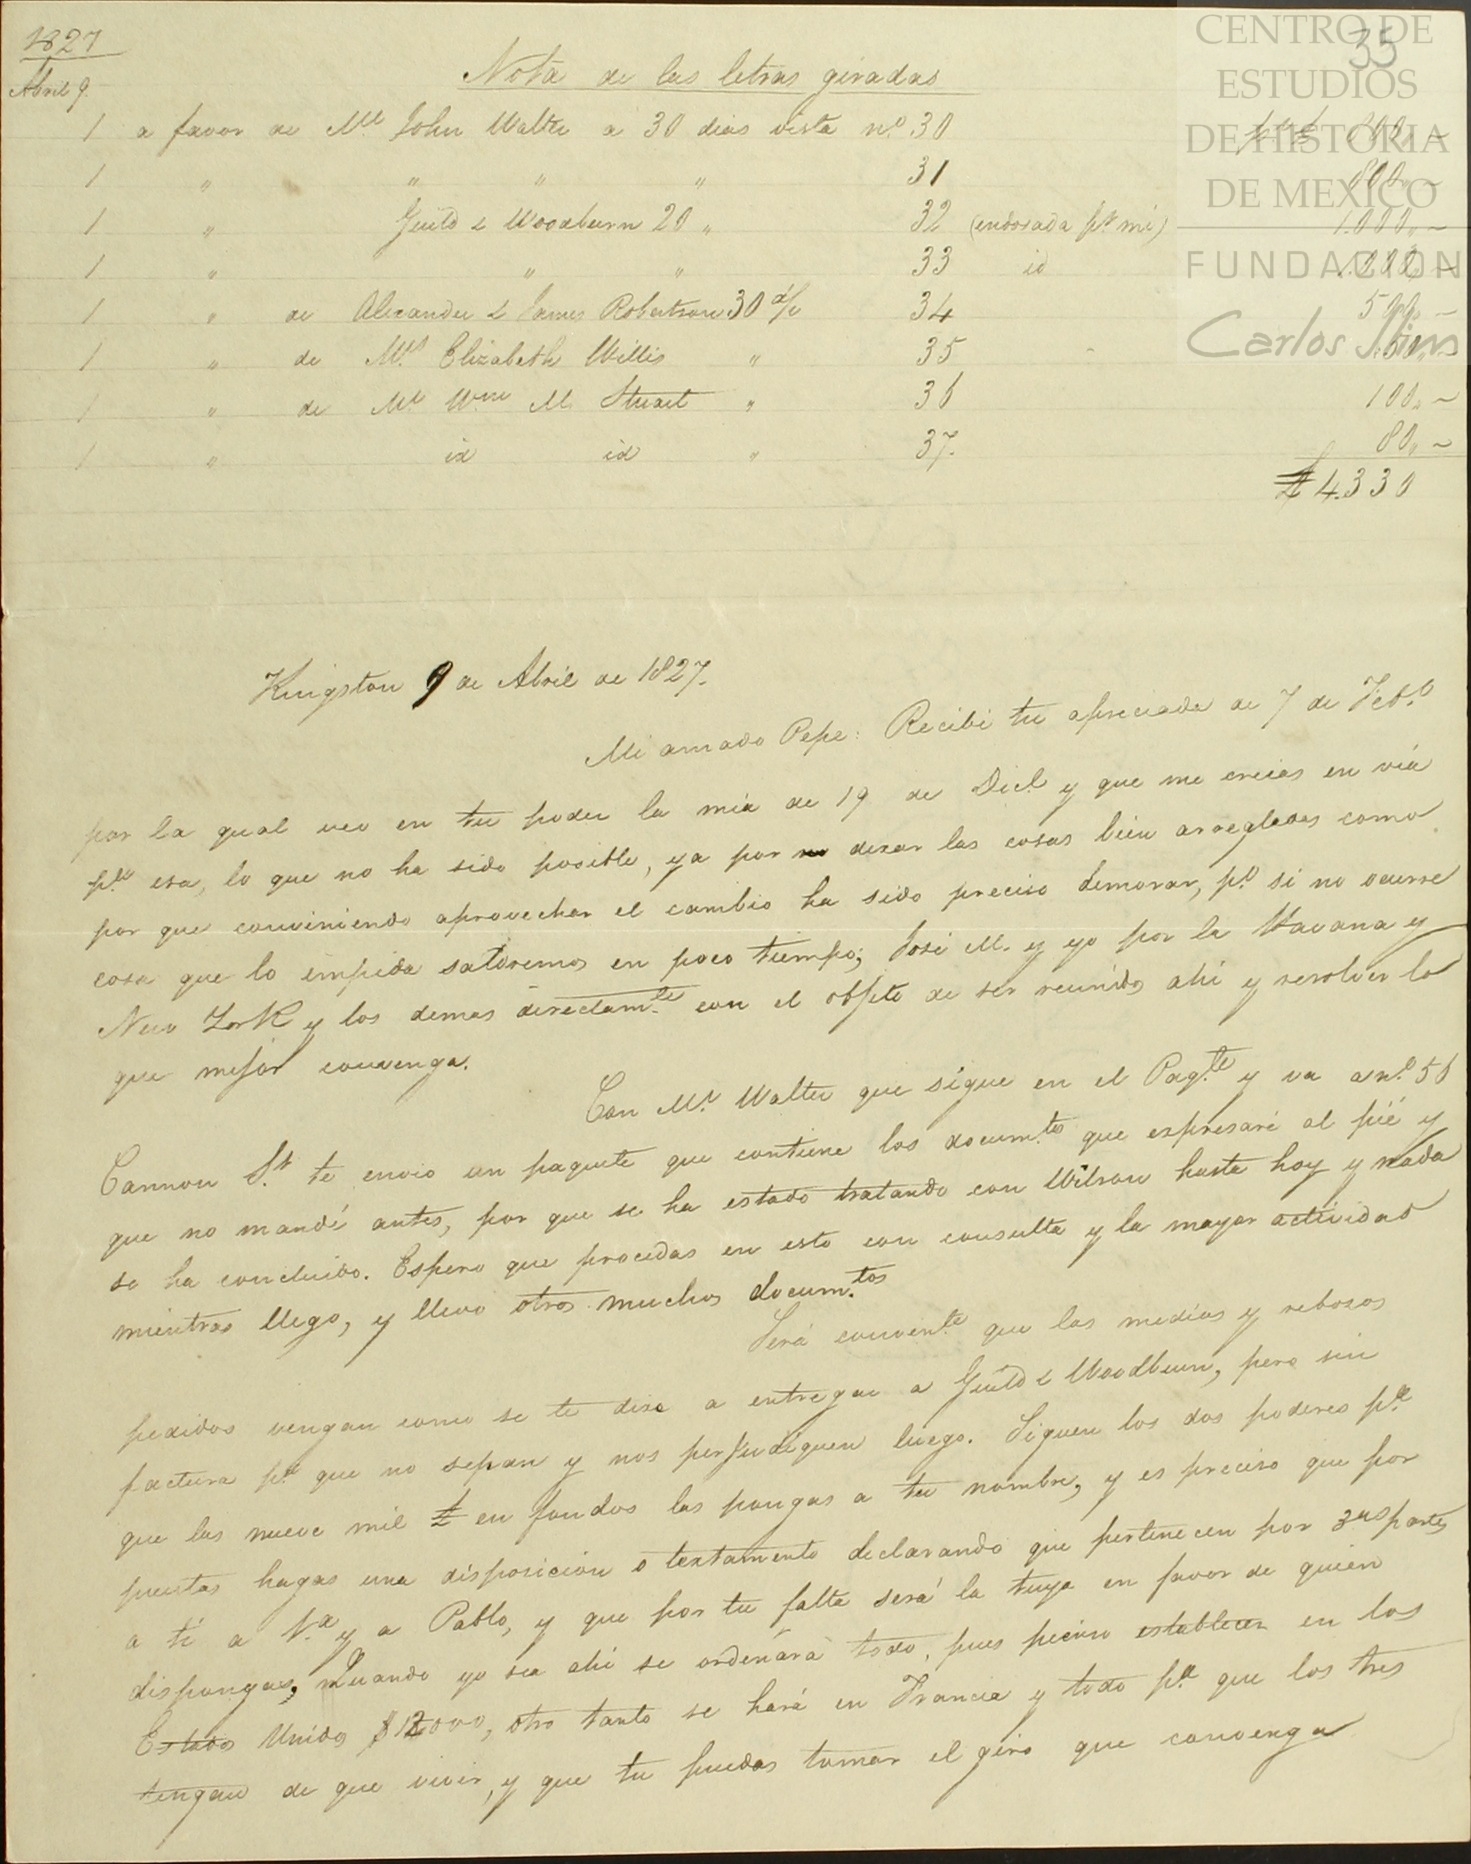 1827
Abril 9.
Nota de las letras giradas
35
CENTRO DE
ESTUDIOS
DE HISTORIA
DE MEXICO
FUNDACION
Carlos Slim
1 a favor de Mr. John Walter a 30 dias vista no. 30
1 " " " " 31 800,,~
1 " Guild & Woodburn 20 " 32 (endosada pr. mi) 1.000,,~
1 " " " 33 id
1 " de Alexander & James Robertson 30 d/v 34 500,,~
1 " de Mrs. Elizabeth Willis " 35
1 " de Mr. Wm. M. Stuart " 36 100,,~
1 " id id " 37. 80,,~
£ 4.330
Kingston 9 de Abril de 1827.
Mi amado Pepe: Recibi tu apreciada de 7 de Feb.o
por la qual veo en tu poder la mia de 19 de Dice. y que me creias en via
pa. esa, lo que no ha sido posible, ya por dexar las cosas bien arregladas como
por que conviniendo aprovechar el cambio ha sido preciso demorar, po. si no ocurre
cosa que lo impida saldremos en poco tiempo; José M. y yo por la Havana y
New York y los demas directam.te con el objeto de ser reunidos ahi y resolver lo
que mejor convenga.
Con Mr. Walter que sigue en el Paq.te y va a no. 56
Cannon St. te envio un paquete que contiene los docum.tos que expresaré al pié y
que no mandé antes, por que se ha estado tratando con Wilson hasta hoy y nada
se ha concluido. Espero que procedas en esto con consulta y la mayor actividad
mientras llego, y llevo otros muchos docum.tos
Será convente. que las medias y rebosos
pedidos vengan como se te dixe a entregar a Guild & Woodburn, pero sin
factura pa. que no sepan y nos perjudiquen luego. Siguen los dos poderes pa.
que las nueve mil £ en fondos las pongas a tu nombre, y es preciso que por
puntos hagas una disposicion o textamento declarando que pertenecen por 3as partes
a ti a y a Pablo, y que por tu falta será la tuya en favor de quien
dispongas, Quando yo sea ahi se ordenará todo, pues pienso establecer en los
Estados Unidos $12000, otro tanto se hará en Francia y todo pa. que los tres
tengan de que vivir, y que tu puedas tomar el giro que convenga